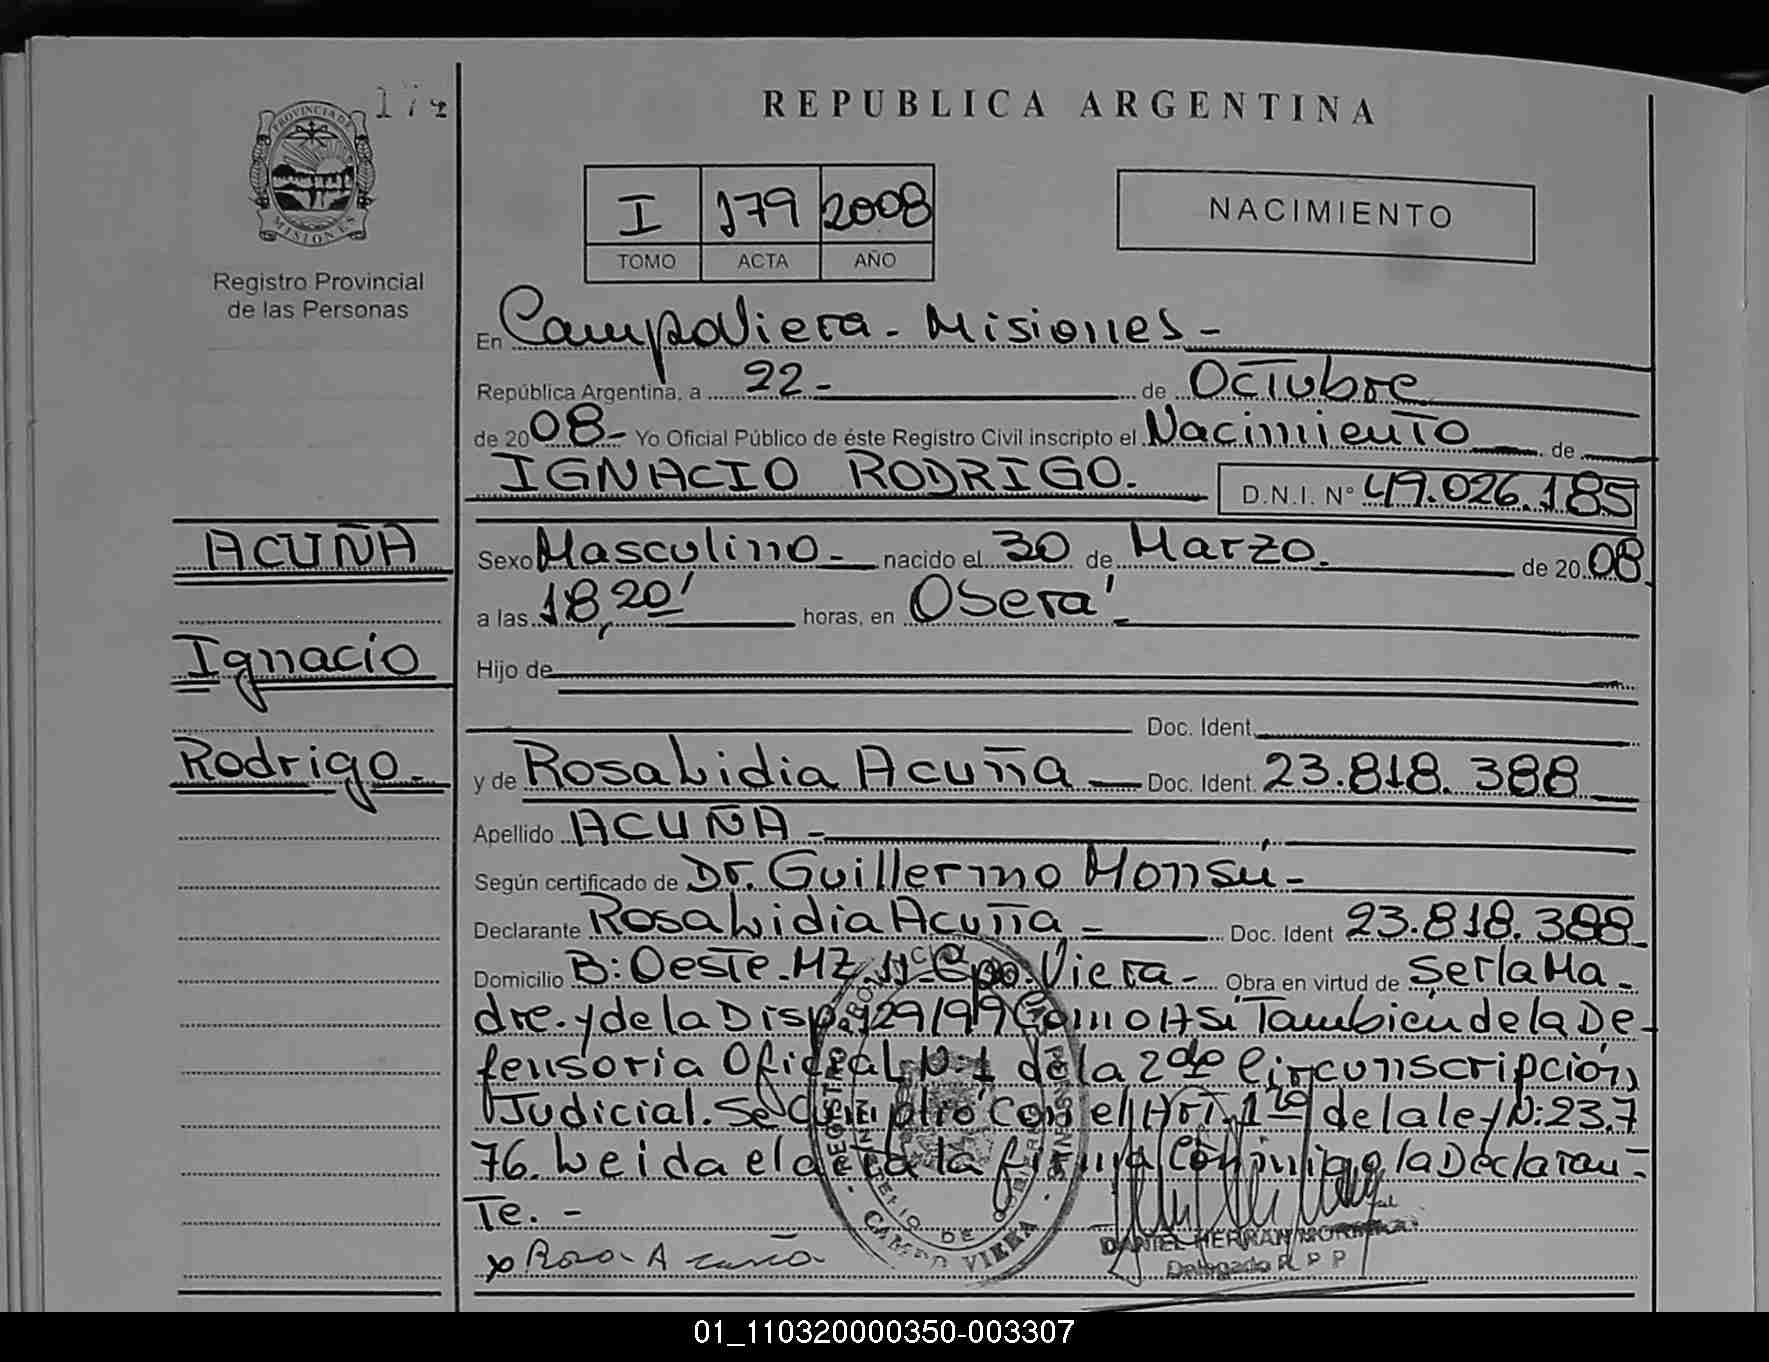 REPUBLICA ARGENTINA
PROVINCIA DE
MISIONES
Registro Provincial
de las Personas
I 179 2008
TOMO ACTA AÑO
NACIMIENTO
En CampoViera - Misiones -
República Argentina, a 22 - de Octubre
de 2008 - Yo Oficial Público de éste Registro Civil inscripto el Nacimiento de
IGNACIO RODRIGO. D.N.I. N° 49.026.185
ACUÑA
Ignacio
Rodrigo -
Sexo Masculino - nacido el 30 de Marzo. de 2008
a las 18,20' horas, en Oberá -
Hijo de
Doc. Ident.
y de Rosa Lidia Acuña - Doc. Ident. 23.818.388
Apellido ACUÑA -
Según certificado de Dr. Guillermo Monsú -
Declarante Rosa Lidia Acuña - Doc. Ident 23.818.388
Domicilio B: Oeste - MZ 11 - Cpo. Viera - Obra en virtud de Ser la Ma -
dre. y de la Disp. 129/99 Como Asi Tambien de la De -
fensoria Oficial N° 1 de la 2da Circunscripción
Judicial. Se Cumplió Con el Art. 1ro de la ley N: 23.7
76. Leida el acta la firma Conmigo la Declaran -
Te. -
x Rosa Acuña
DANIEL HERNAN
Delegado R P P
CAMPO VIERA
01_110320000350-003307